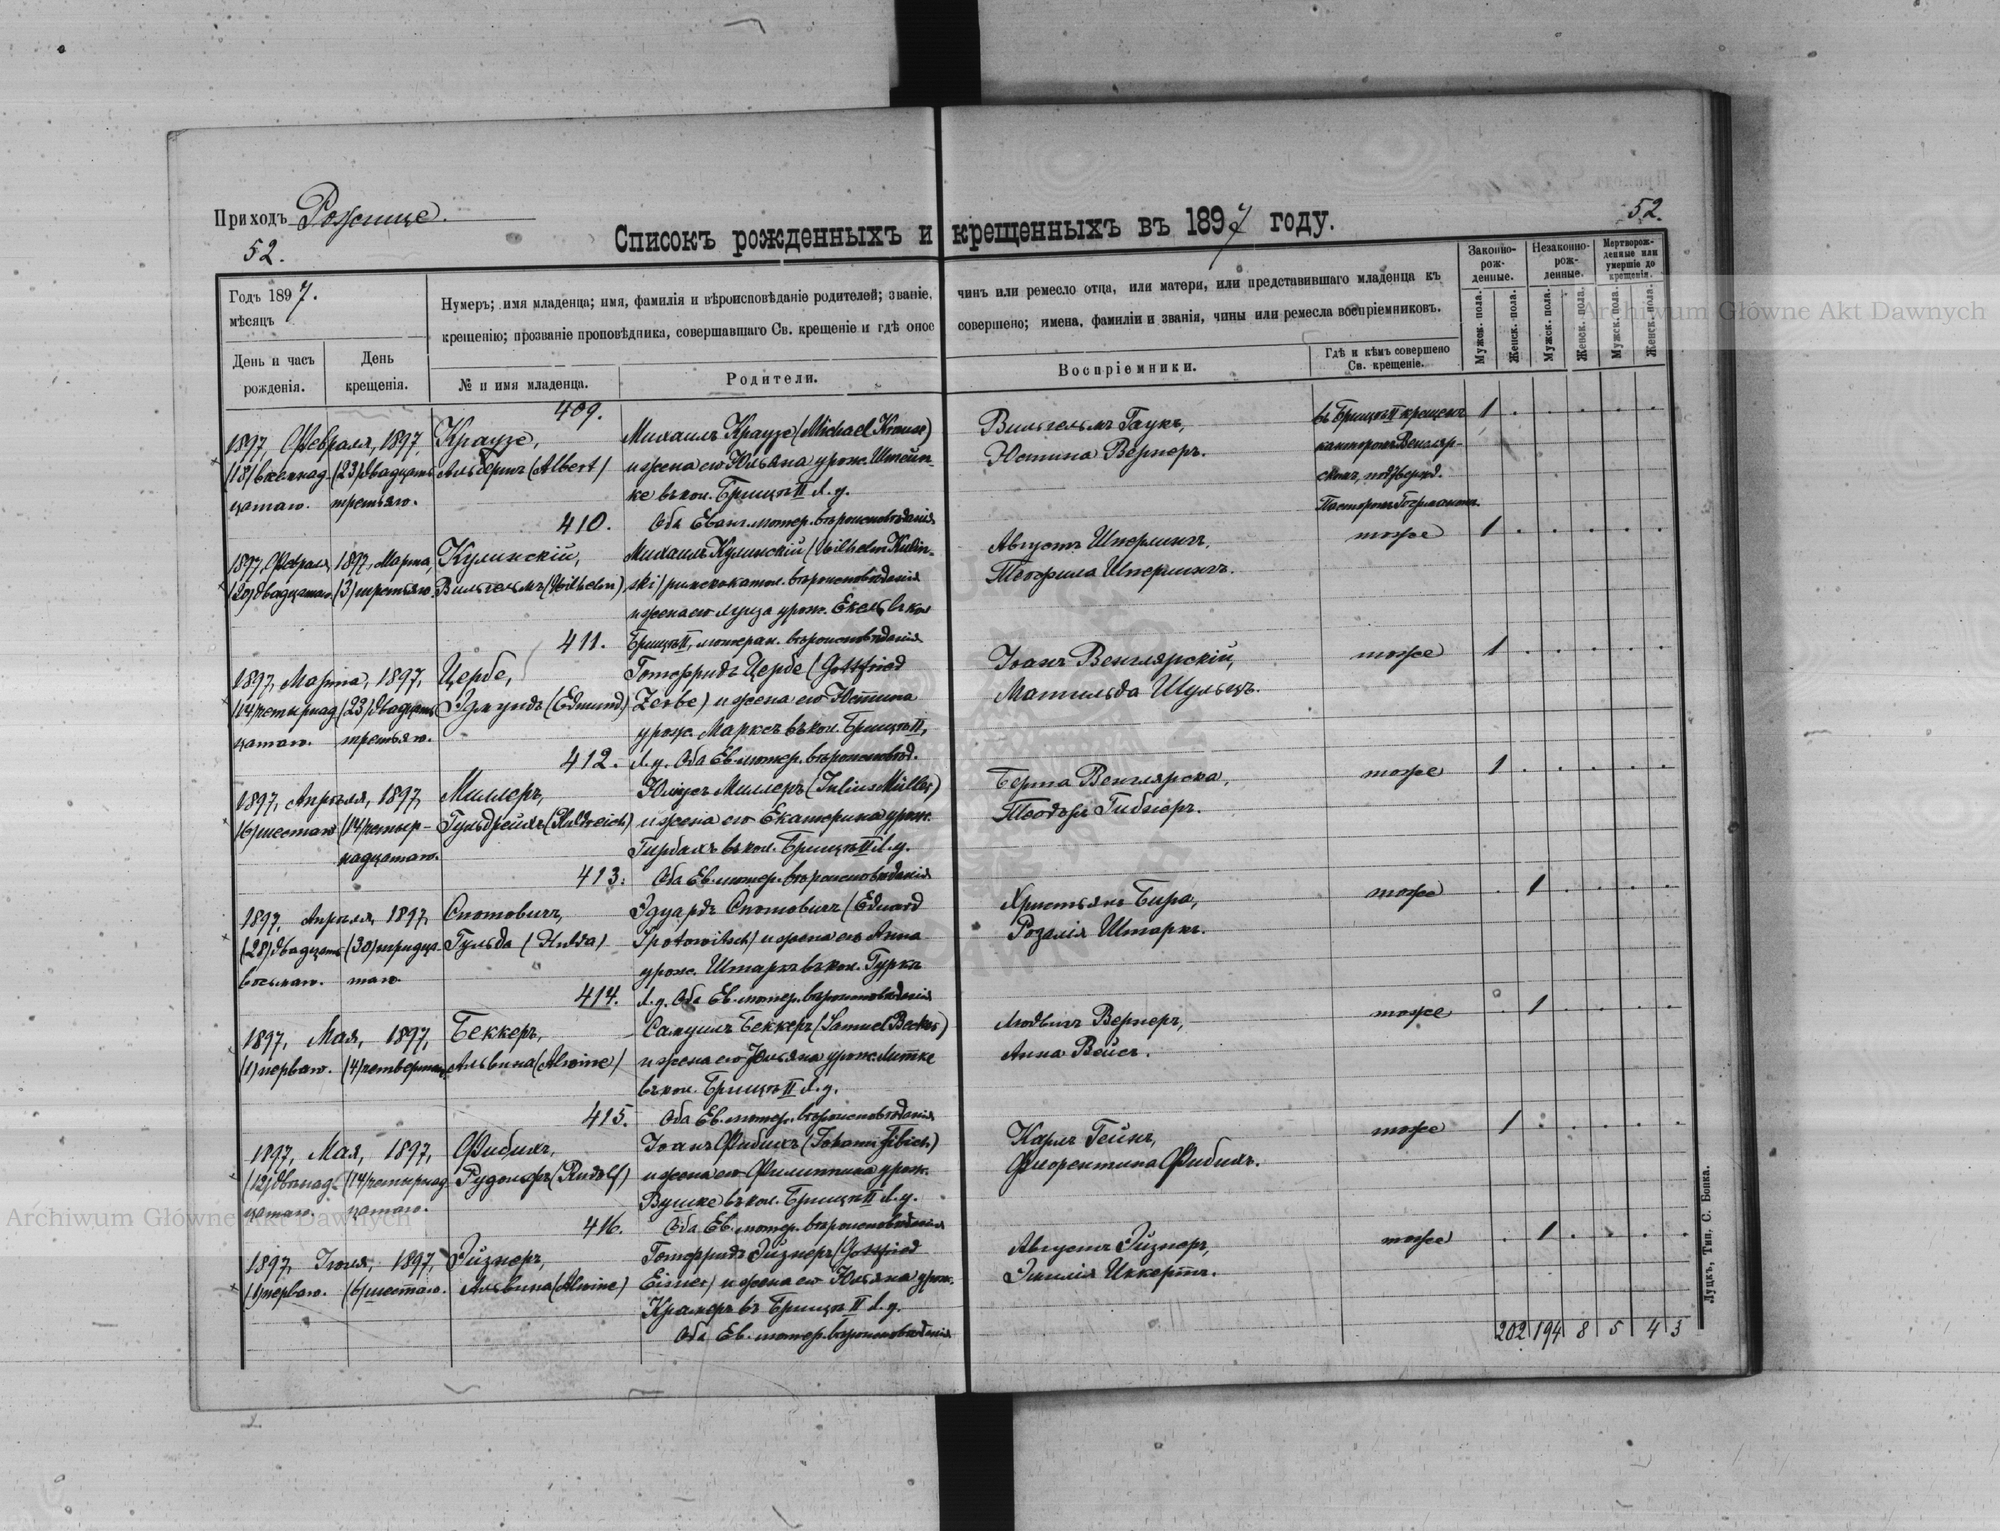 Приходъ Рожище.
52.
52.
Списокъ рожденныхъ и крещенныхъ въ 1897 году.
Годъ 1897.
мѣсяцъ
Нумеръ; имя младенца; имя, фамилія и вѣроисповѣданіе родителей; званіе, чинъ или ремесло отца, или матери, или представившаго младенца къ
крещенію; прозваніе проповѣдника, совершавшаго Св. крещеніе и гдѣ оное совершено; имена, фамиліи и званія, чины или ремесла воспріемниковъ.
Законно-
рож-
денные.
Незаконно-
рож-
денные.
Мертворож-
денные или
умершіе до
крещенія.
День и часъ
рожденія.
День
крещенія.
№ и имя младенца.
Родители.
Воспріемники.
Гдѣ и кѣмъ совершено
Св. крещеніе.
Мужск. пола.
Женск. пола.
Мужск. пола.
Женск. пола.
Мужск. пола.
Женск. пола.
409.
1897, Февраля, 1897,
(18) восемнад- (23) двадцать
цатаго. третьяго.
Краузе,
Альбертъ (Albert)
Михаилъ Краузе (Michael Krause)
и жена его Юльяна урож. Штейн-
ке въ кол. Брищъ II Л. у.
Оба Еванг. лютер. вѣроисповѣданія
Вильгельмъ Гаукъ,
Юстина Вернеръ.
въ Брищъ II крещенъ
канторомъ Венгляр-
скимъ, подтвержд.
Пасторомъ
1
410.
1897, Февраля 1897, Марта,
(20) двадцатаго (3) третьяго.
Кулинскій,
Вильгельмъ (Wilhelm)
Михаилъ Кулинскій (Wilhelm Kulin-
ski) римскокатол. вѣроисповѣданія
и жена его Луиза урож. Екель въ кол.
Брищъ II, лютеран. вѣроисповѣданія
Августъ Шперлингъ,
Теофила Шперлингъ.
тоже
1
411.
1897, Марта, 1897,
(14) четырнад- (23) двадцать
цатаго. третьяго.
Цербе,
Эдмундъ (Edmund)
Готфридъ Цербе (Gottfried
Zerbe) и жена его Юстина
урож. Марксъ въ кол. Брищъ II,
Л. у. Оба Ев. лютер. вѣроисповѣд.
Іоанъ Венглярскій,
Матильда Шульцъ.
тоже
1
412.
1897, Апрѣля, 1897,
(6) шестаго (14) четыр-
надцатаго.
Миллеръ,
Гульдрейхъ (Huldreich)
Юліусъ Миллеръ (Julius Müller)
и жена его Екатерина урож.
въ кол. Брищъ II Л. у.
Оба Ев. лютер. вѣроисповѣданія
Берта Венглярска,
Теодоръ Гибнеръ.
тоже
1
413.
1897, Апрѣля, 1897,
(28) двадцать (30) тридца-
восьмаго. таго.
Спотовичъ,
Гульда (Hulda)
Эдуардъ Спотовичъ (Eduard
Spotowitsch) и жена его Анна
урож. Штаркъ въ кол. Гурка
Л. у. Оба Ев. лютер. вѣроисповѣданія
Христьянъ Бира,
Розалія Штаркъ.
тоже
1
414.
1897, Мая, 1897,
(1) перваго. (4) четвертаго
Беккеръ,
Альвина (Alwine)
Самуилъ Беккеръ (Samuel Becker)
и жена его Юльяна урож. Литке
въ кол. Брищъ II Л. у.
Оба Ев. лютер. вѣроисповѣданія
Людвигъ Вернеръ,
Анна Вейсъ.
тоже
1
415.
1897, Мая, 1897,
(12) двѣнад- (14) четырнад-
цатаго. цатаго.
Фибихъ,
Рудольфъ (Rudolf)
Іоанъ Фибихъ (Johann Fibich)
и жена его Филиппина урож.
Вушке въ кол. Брищъ II Л. у.
Оба Ев. лютер. вѣроисповѣданія
Карлъ Гейнъ,
Флорентина Фибихъ.
тоже
1
416.
1897, Іюня, 1897,
(1) перваго. (6) шестаго.
Эйзнеръ,
Альвина (Alwine)
Готфридъ Эйзнеръ (Gottfried
Eisner) и жена его Юльяна урож.
Крамеръ въ Брищъ II Л. у.
Оба Ев. лютер. вѣроисповѣданія
Августъ Эйзнеръ,
Эмилія Иккертъ.
тоже
1
202 194 8 5 4 3
Луцкъ, Тип. С. Бонка.
Archiwum Główne Akt Dawnych
Archiwum Główne Akt Dawnych